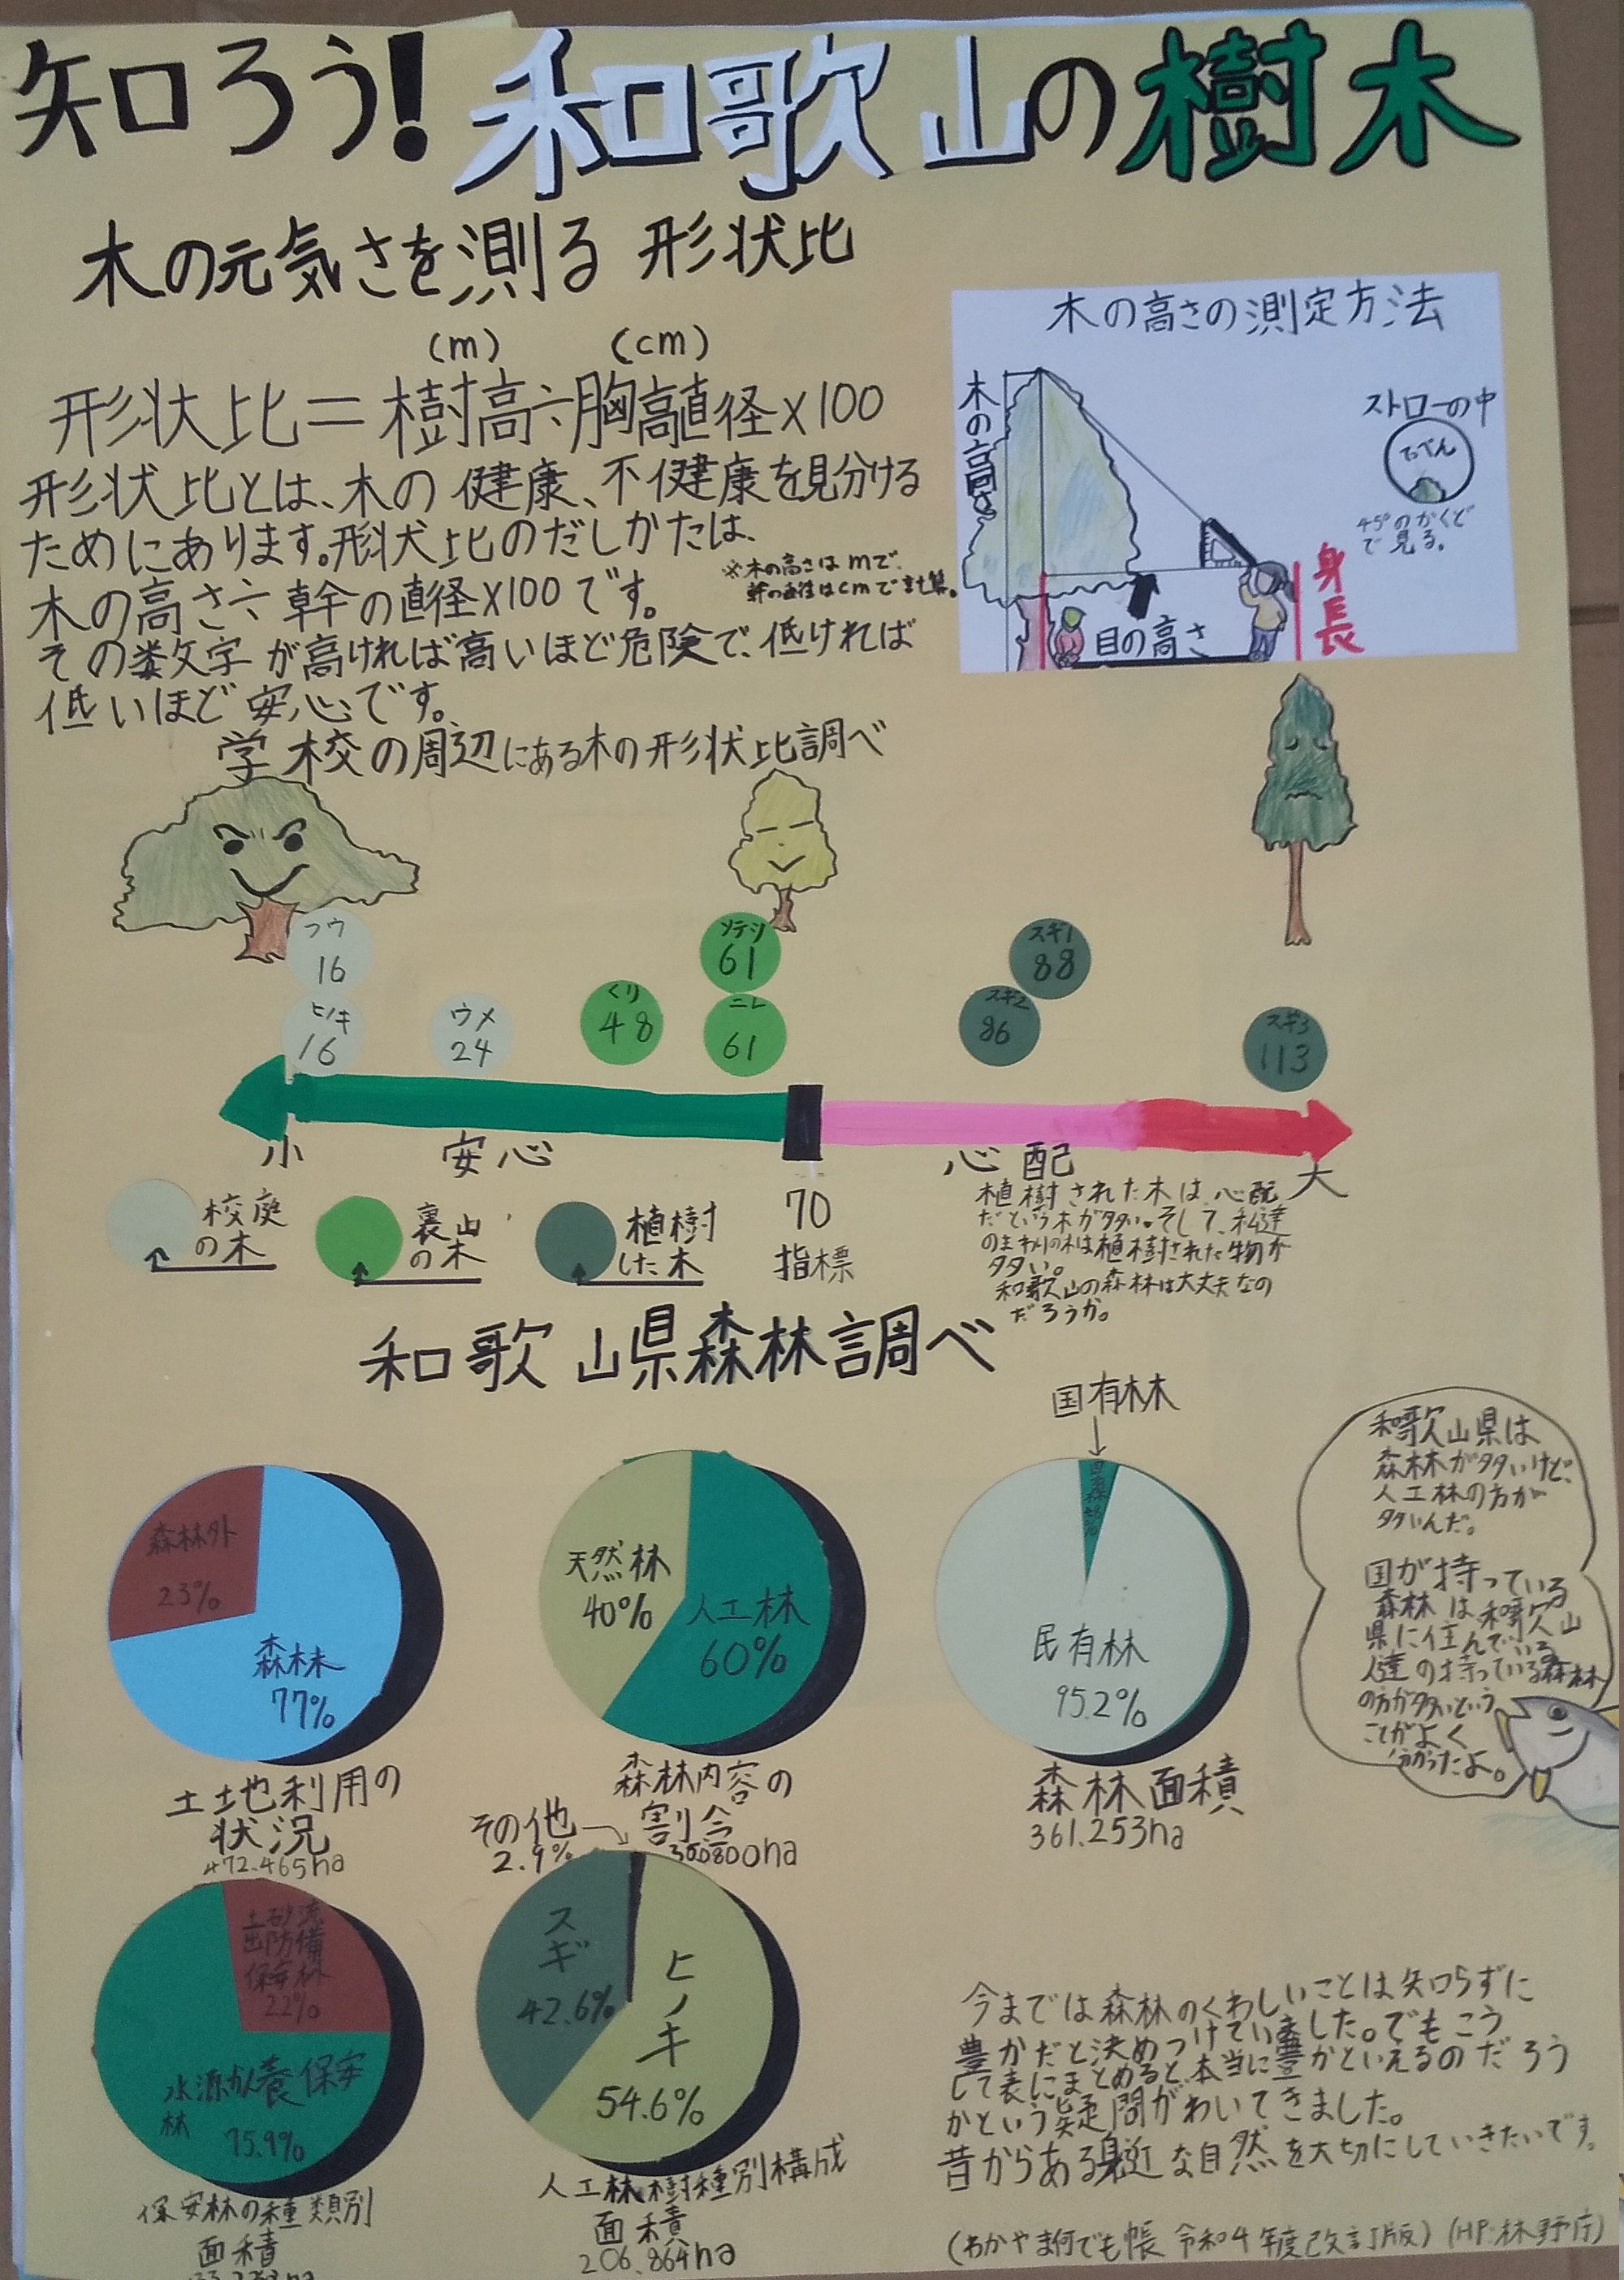 知ろう!和歌山の樹木
木の元気さを測る 形状比
(m) (cm)
形状比=樹高÷胸高直径×100
形状比とは、木の健康、不健康を見分ける
ためにあります。形状比のだしかたは、
木の高さ÷幹の直径×100です。
※木の高さはmで、
幹の直径はcmで計算。
その数文字が高ければ高いほど危険で、低ければ
低いほど安心です。
木の高さの測定方法
木の高さ
ストローの中
てっぺん
45°のかくど
で見る。
目の高さ
身長
学校の周辺にある木の形状比調べ
フウ
16
ヒノキ
16
ウメ
24
くり
48
ソテツ
61
ニレ
61
スギ1
88
スギ2
86
スギ3
113
小
安心
心配
大
70
指標
校庭
の木
裏山
の木
植樹
した木
植樹された木は、心配
だという木が多い。そして、私達
のまわりの木は植樹された物が
多い。
和歌山の森林は大丈夫なの
だろうか。
和歌山県森林調べ
森林外
23%
森林
77%
土地利用の
状況
472.465ha
天然林
40%
人工林
60%
森林内容の
割合
国有林
民有林
95.2%
森林面積
361.253ha
和歌山県は
森林が多いけど、
人工林の方が
多いんだ。
国が持っている
森林は和歌山
県に住んでいる
人達の持っている森林
の方が多いという
ことがよく
分かったよ。
土砂流
出防備
保安林
22%
水源かん養保安
林
75.9%
保安林の種類別
面積
その他
2.9%
スギ
42.6%
ヒノキ
54.6%
人工林樹種別構成
面積
206.864ha
今までは森林のくわしいことは知らずに
豊かだと決めつけていました。でもこう
して表にまとめると、本当に豊かといえるのだろう
かという疑問がわいてきました。
昔からある身近な自然を大切にしていきたいです。
(わかやま何でも帳 令和4年度改訂版)(HP:林野庁)